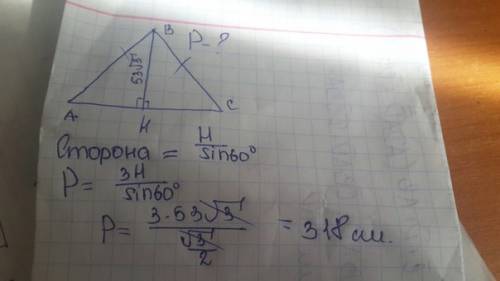 B
P-?
53√3
A
H
C
Сторона = H/sin60°
P= 3H/sin60°
P= 3·53√3/(√3/2) = 318 см.